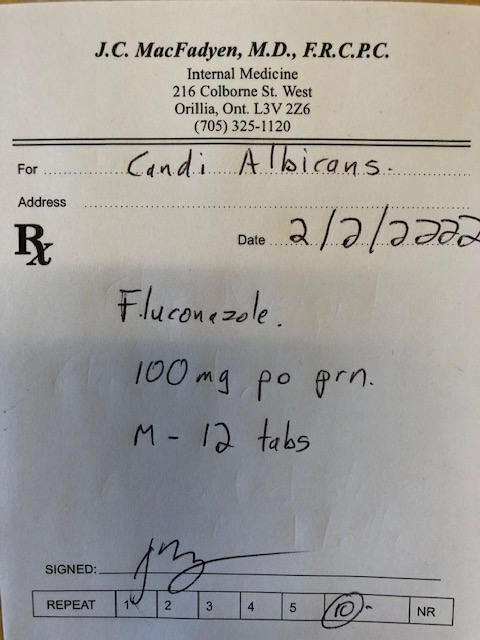 J.C. MacFadyen, M.D., F.R.C.P.C.
Internal Medicine
216 Colborne St. West
Orillia, Ont. L3V 2Z6
(705) 325-1120
For Candi Albicans.
Address
Rx Date 2/2/2222
Fluconazole.
100mg po prn.
M - 12 tabs
SIGNED:
REPEAT 1 2 3 4 5 10 - NR